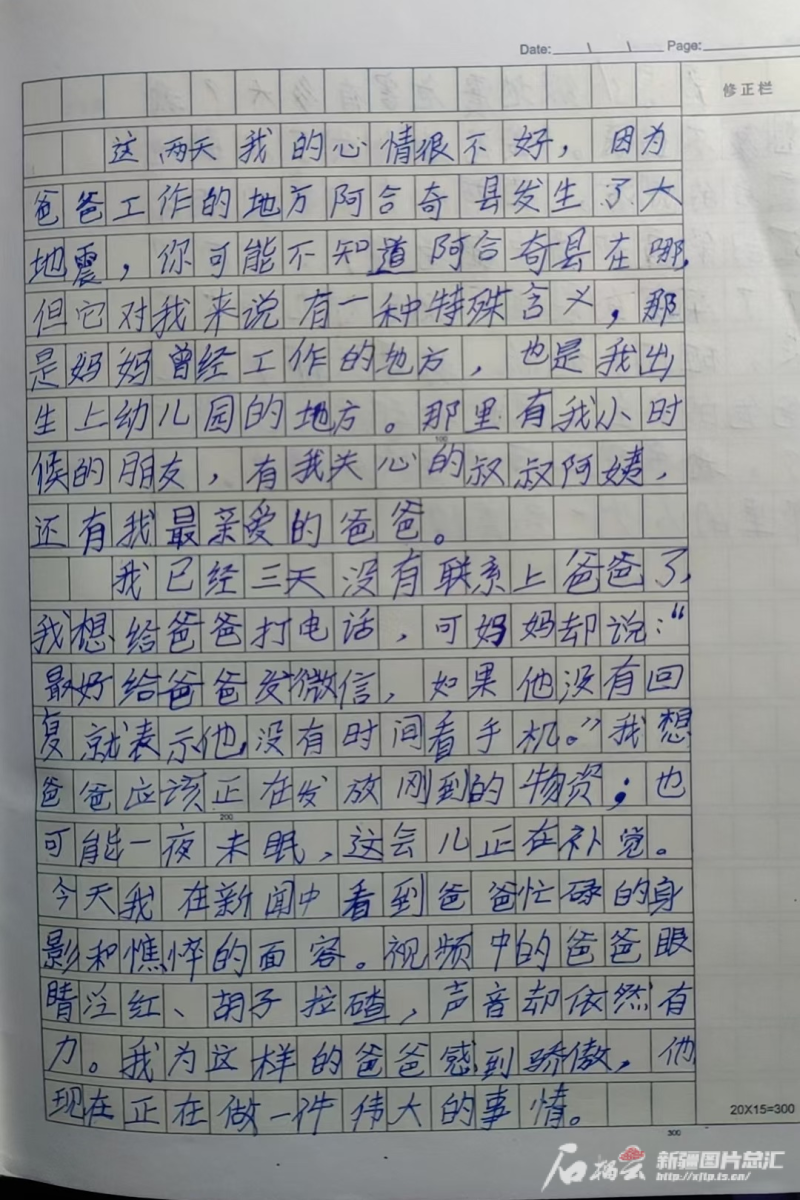 Date: Page:
修正栏
这两天我的心情很不好，因为
爸爸工作的地方阿合奇县发生了大
地震，你可能不知道阿合奇县在哪，
但它对我来说有一种特殊含义，那
是妈妈曾经工作的地方，也是我出
生上幼儿园的地方。那里有我小时
候的朋友，有我关心的叔叔阿姨，
还有我最亲爱的爸爸。
100
我已经三天没有联系上爸爸了，
我想给爸爸打电话，可妈妈却说：“
最好给爸爸发微信，如果他没有回
复就表示他没有时间看手机。”我想
爸爸应该正在发放刚到的物资；也
200
可能一夜未眠，这会儿正在补觉。
今天我在新闻中看到爸爸忙碌的身
影和憔悴的面容。视频中的爸爸眼
睛泛红、胡子拉碴，声音却依然有
力。我为这样的爸爸感到骄傲，他
现在正在做一件伟大的事情。
20X15=300
300
石榴云 新疆图片总汇
http://xjtp.ts.cn/